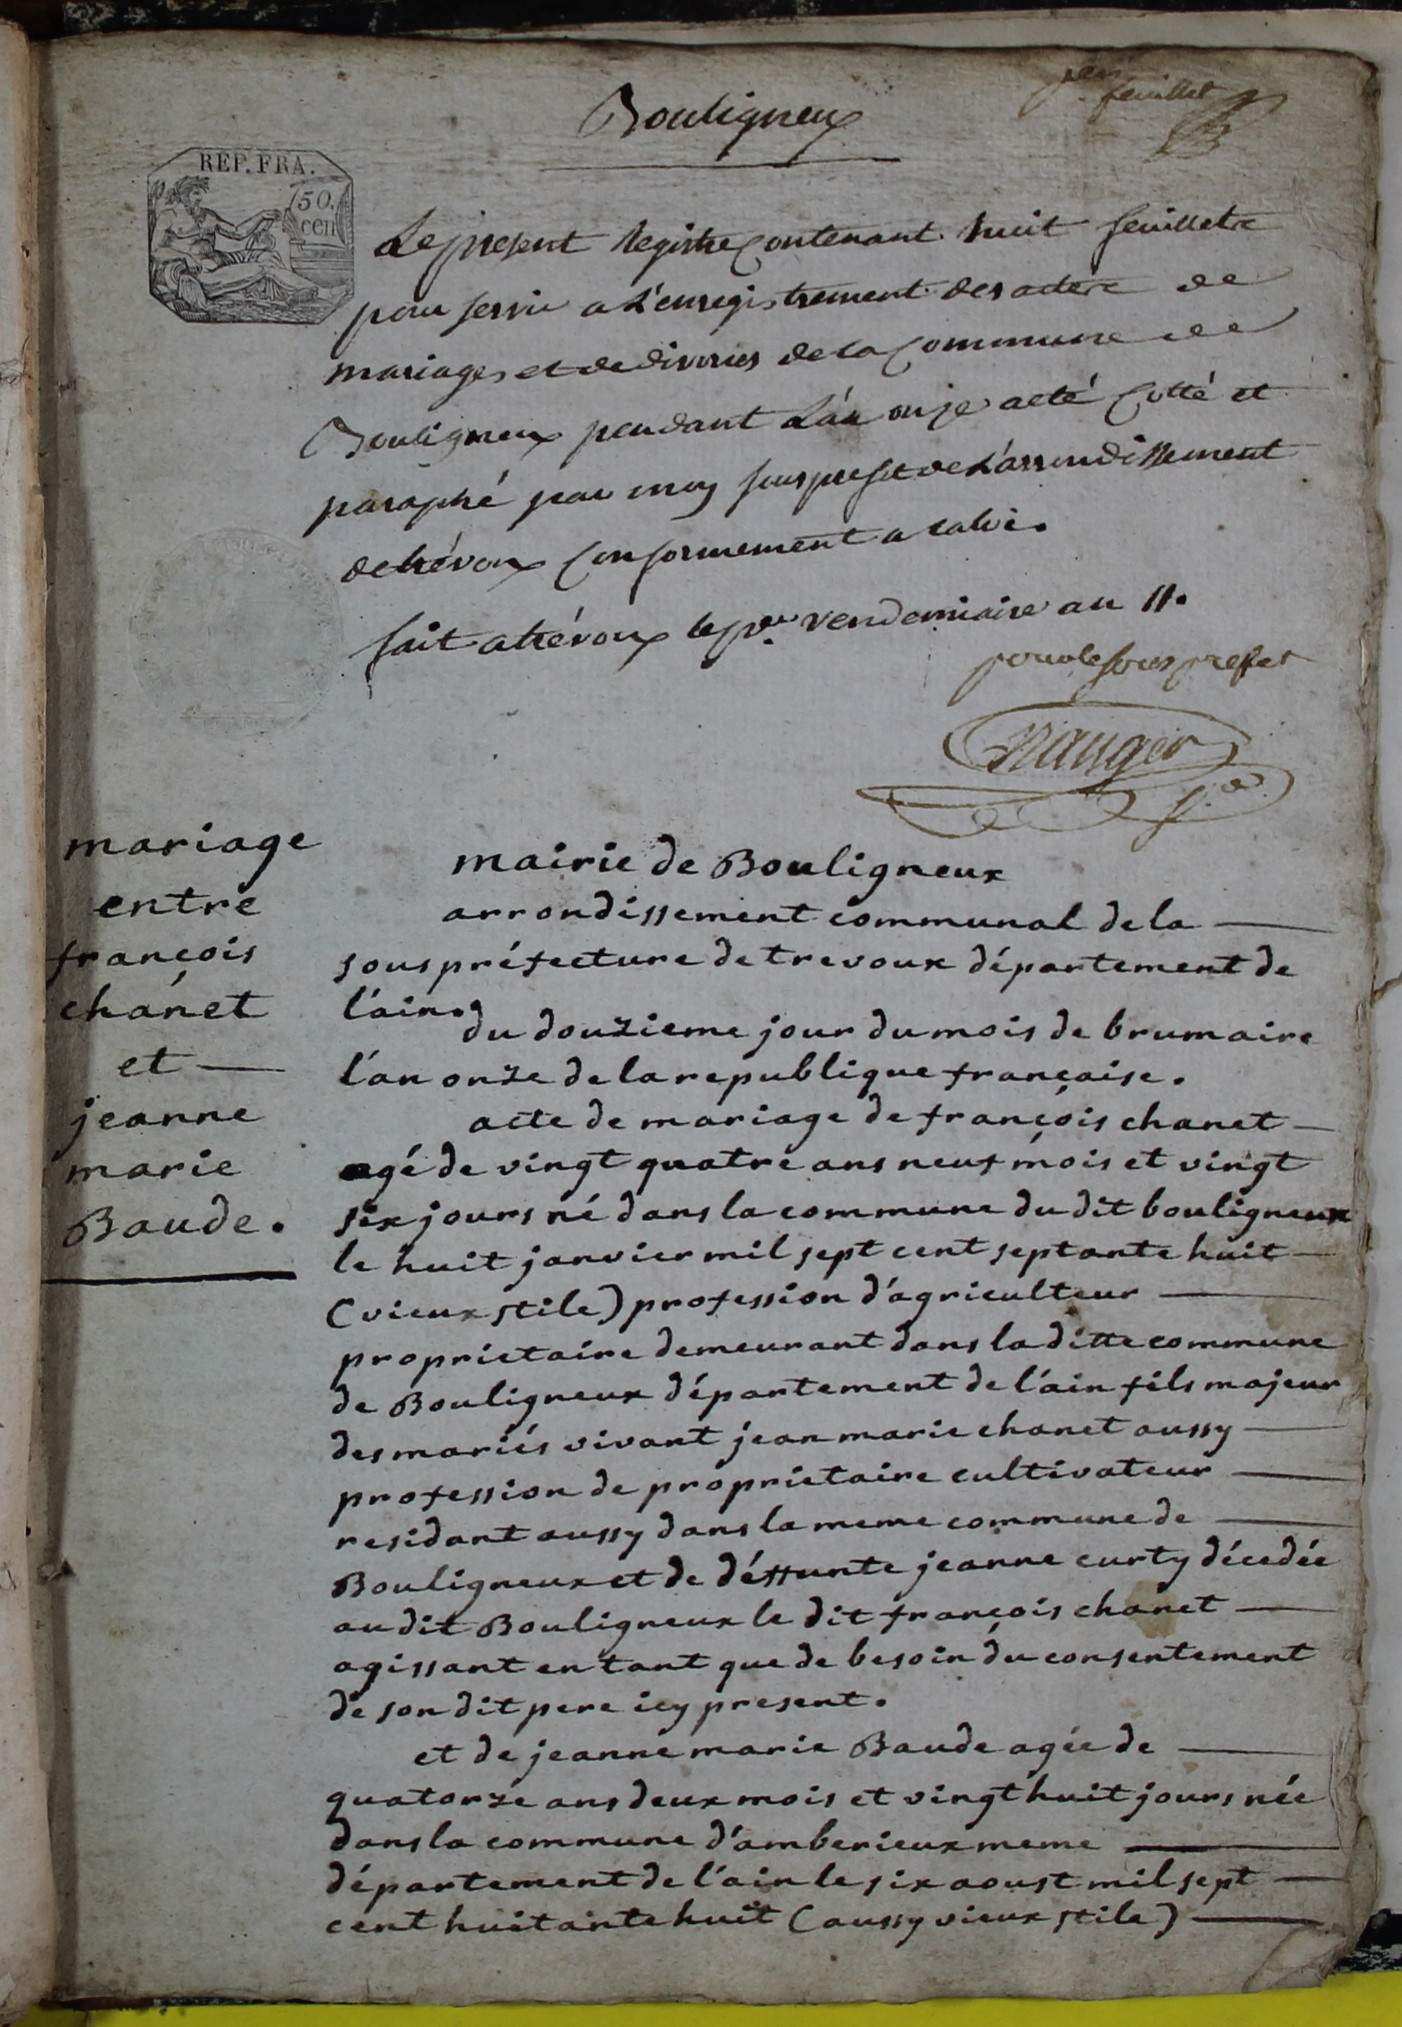 per feuillet
Bouligneux
REP. FRA.
50.
cen
Le present registre contenant huit feuilletz
pour servir a l'enregistrement des actes de
mariages et de divorces de la Commune de
Bouligneux pendant l'an onze a eté cotté et
paraphé par moy sous prefet de l'arrondissement
de trévoux conformement a la loi.
fait a trévoux le per vendemiaire an 11.
pour le sous prefet
mariage
entre
françois
chanet
et
jeanne
marie
Baude.
mairie de Bouligneux
arrondissement communal de la
sous préfecture de trevoux département de
l'ain.
du douzieme jour du mois de brumaire
l'an onze de la republique française.
acte de mariage de françois chanet
agé de vingt quatre ans neuf mois et vingt
six jours né dans la commune du dit bouligneux
le huit janvier mil sept cent septante huit
(vieux stile) profession d'agriculteur
proprietaire demeurant dans la ditte commune
de Bouligneux département de l'ain fils majeur
des mariés vivant jean marie chanet aussy
profession de proprietaire cultivateur
residant aussy dans la meme commune de
Bouligneux et de déffunte jeanne curty décedée
au dit Bouligneux le dit françois chanet
agissant en tant que de besoin du consentement
de son dit pere icy present.
et de jeanne marie Baude agée de
quatorze ans deux mois et vingt huit jours née
dans la commune d'amberieux meme
département de l'ain le six aoust mil sept
cent huitante huit (aussy vieux stile)